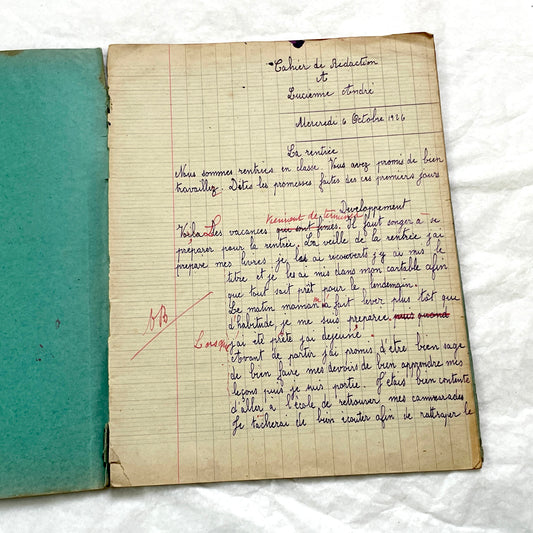 Cahier de Rédaction
A
Lucienne André
Mercredi 6 Octobre 1926
La rentrée
Nous sommes rentrées en classe. Vous avez promis de bien
travaillez. Dîtes les promesses faites des ces premiers jours
Développement
viennent de terminer
Voila. Les vacances que sont finies. Il faut songer a se
préparer pour la rentrée, La veille de la rentrée j'ai
prépare mes livres je les ai recouverts j'y ai mis le
titre et je les ai mis dans mon cartable afin
que tout soit prêt pour le lendemain.
Le matin maman a fait lever plus tôt que
d'habitude, je me suis préparée puis quand
Lorsque j'ai été prête j'ai déjeuné.
Avant de partir j'ai promis d'être bien sage
de bien faire mes devoirs de bien apprendre mes
leçons puis je suis partie. J'étais bien contente
d'aller a l'école de retrouver mes camarades
Je tâcherai de bien écouter afin de rattraper le